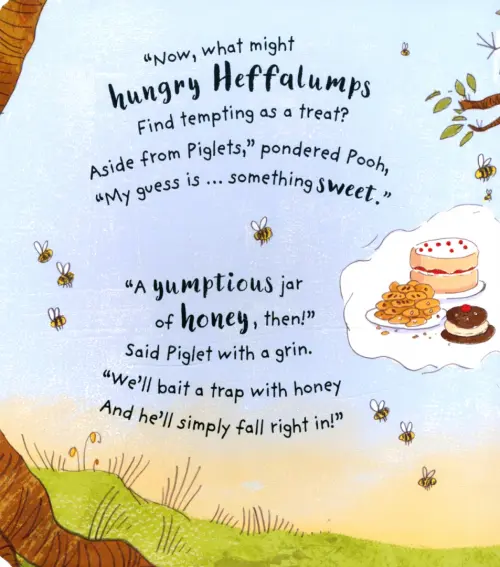 “Now, what might
hungry Heffalumps
Find tempting as a treat?
Aside from Piglets,” pondered Pooh,
“My guess is ... something sweet.”
“A yumptious jar
of honey, then!”
Said Piglet with a grin.
“We’ll bait a trap with honey
And he’ll simply fall right in!”